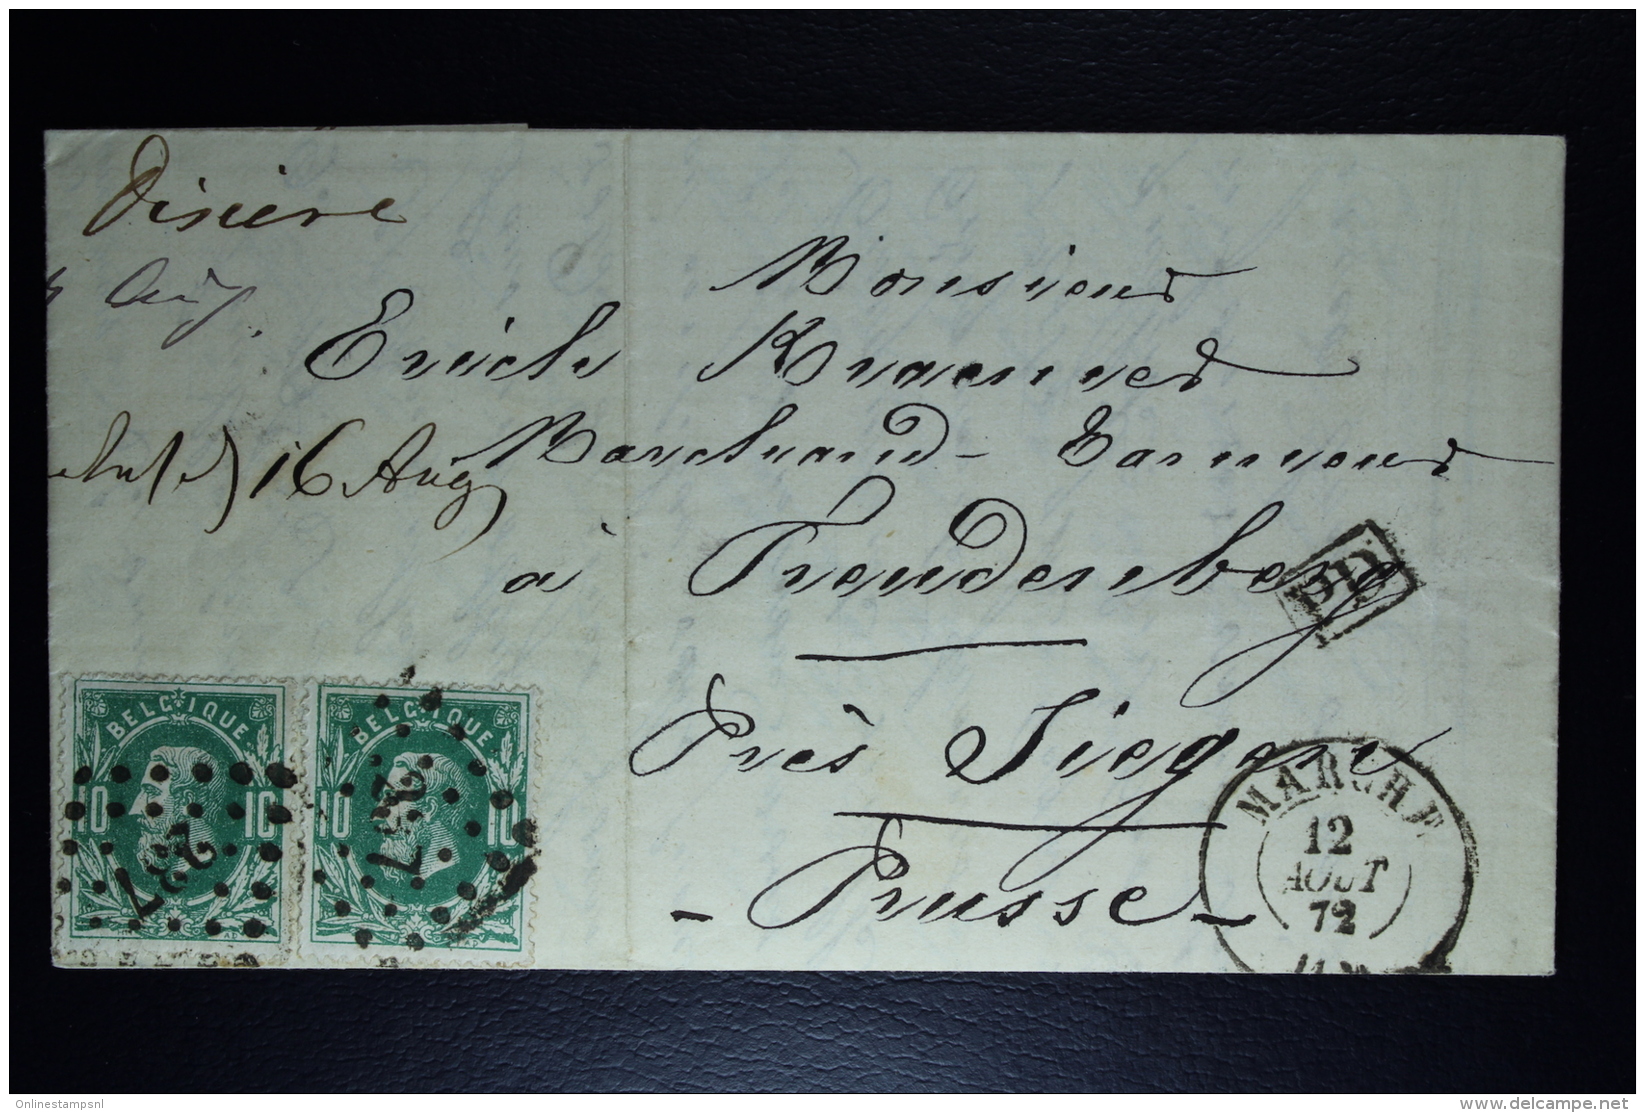 Monsieur
Erich Kraemer
Marchand-Tanneur
à Freudenberg
Près Siegen
- Prusse -
16 Aug
PD
MARCHE
12
AOUT
72
BELGIQUE
10 10
237
BELGIQUE
10 10
237
Onlinestampsnl
delcampe.net